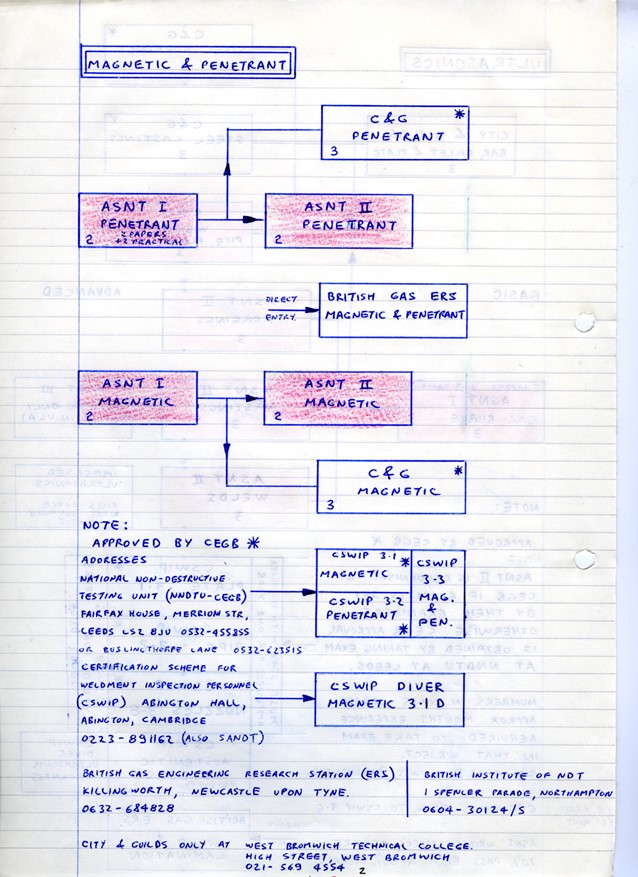 MAGNETIC & PENETRANT
C&G *
PENETRANT
3
ASNT I
PENETRANT
2 PAPERS
2 +2 PRACTICAL
ASNT II
PENETRANT
2
DIRECT
ENTRY.
BRITISH GAS ERS
MAGNETIC & PENETRANT
ASNT I
MAGNETIC
2
ASNT II
MAGNETIC
2
C&G *
MAGNETIC
3
NOTE:
APPROVED BY CEGB *
ADDRESSES
NATIONAL NON-DESTRUCTIVE
TESTING UNIT (NNDTU-CEGB)
FAIRFAX HOUSE, MERRION STR,
LEEDS LS2 8JU 0532-455855
OR BUSLINGTHORPE LANE 0532-623515
CERTIFICATION SCHEME FOR
WELDMENT INSPECTION PERSONNEL
(CSWIP) ABINGTON HALL,
ABINGTON, CAMBRIDGE
0223-891162 (ALSO SANDT)
CSWIP 3.1 *
MAGNETIC
CSWIP 3.2
PENETRANT *
CSWIP
3.3
MAG.
&
PEN.
CSWIP DIVER
MAGNETIC 3.1 D
BRITISH GAS ENGINEERING RESEARCH STATION (ERS)
KILLINGWORTH, NEWCASTLE UPON TYNE.
0632-684828
BRITISH INSTITUTE OF NDT
1 SPENCER PARADE, NORTHAMPTON
0604-30124/5
CITY & GUILDS ONLY AT WEST BROMWICH TECHNICAL COLLEGE.
HIGH STREET, WEST BROMWICH
021-569 4554
2